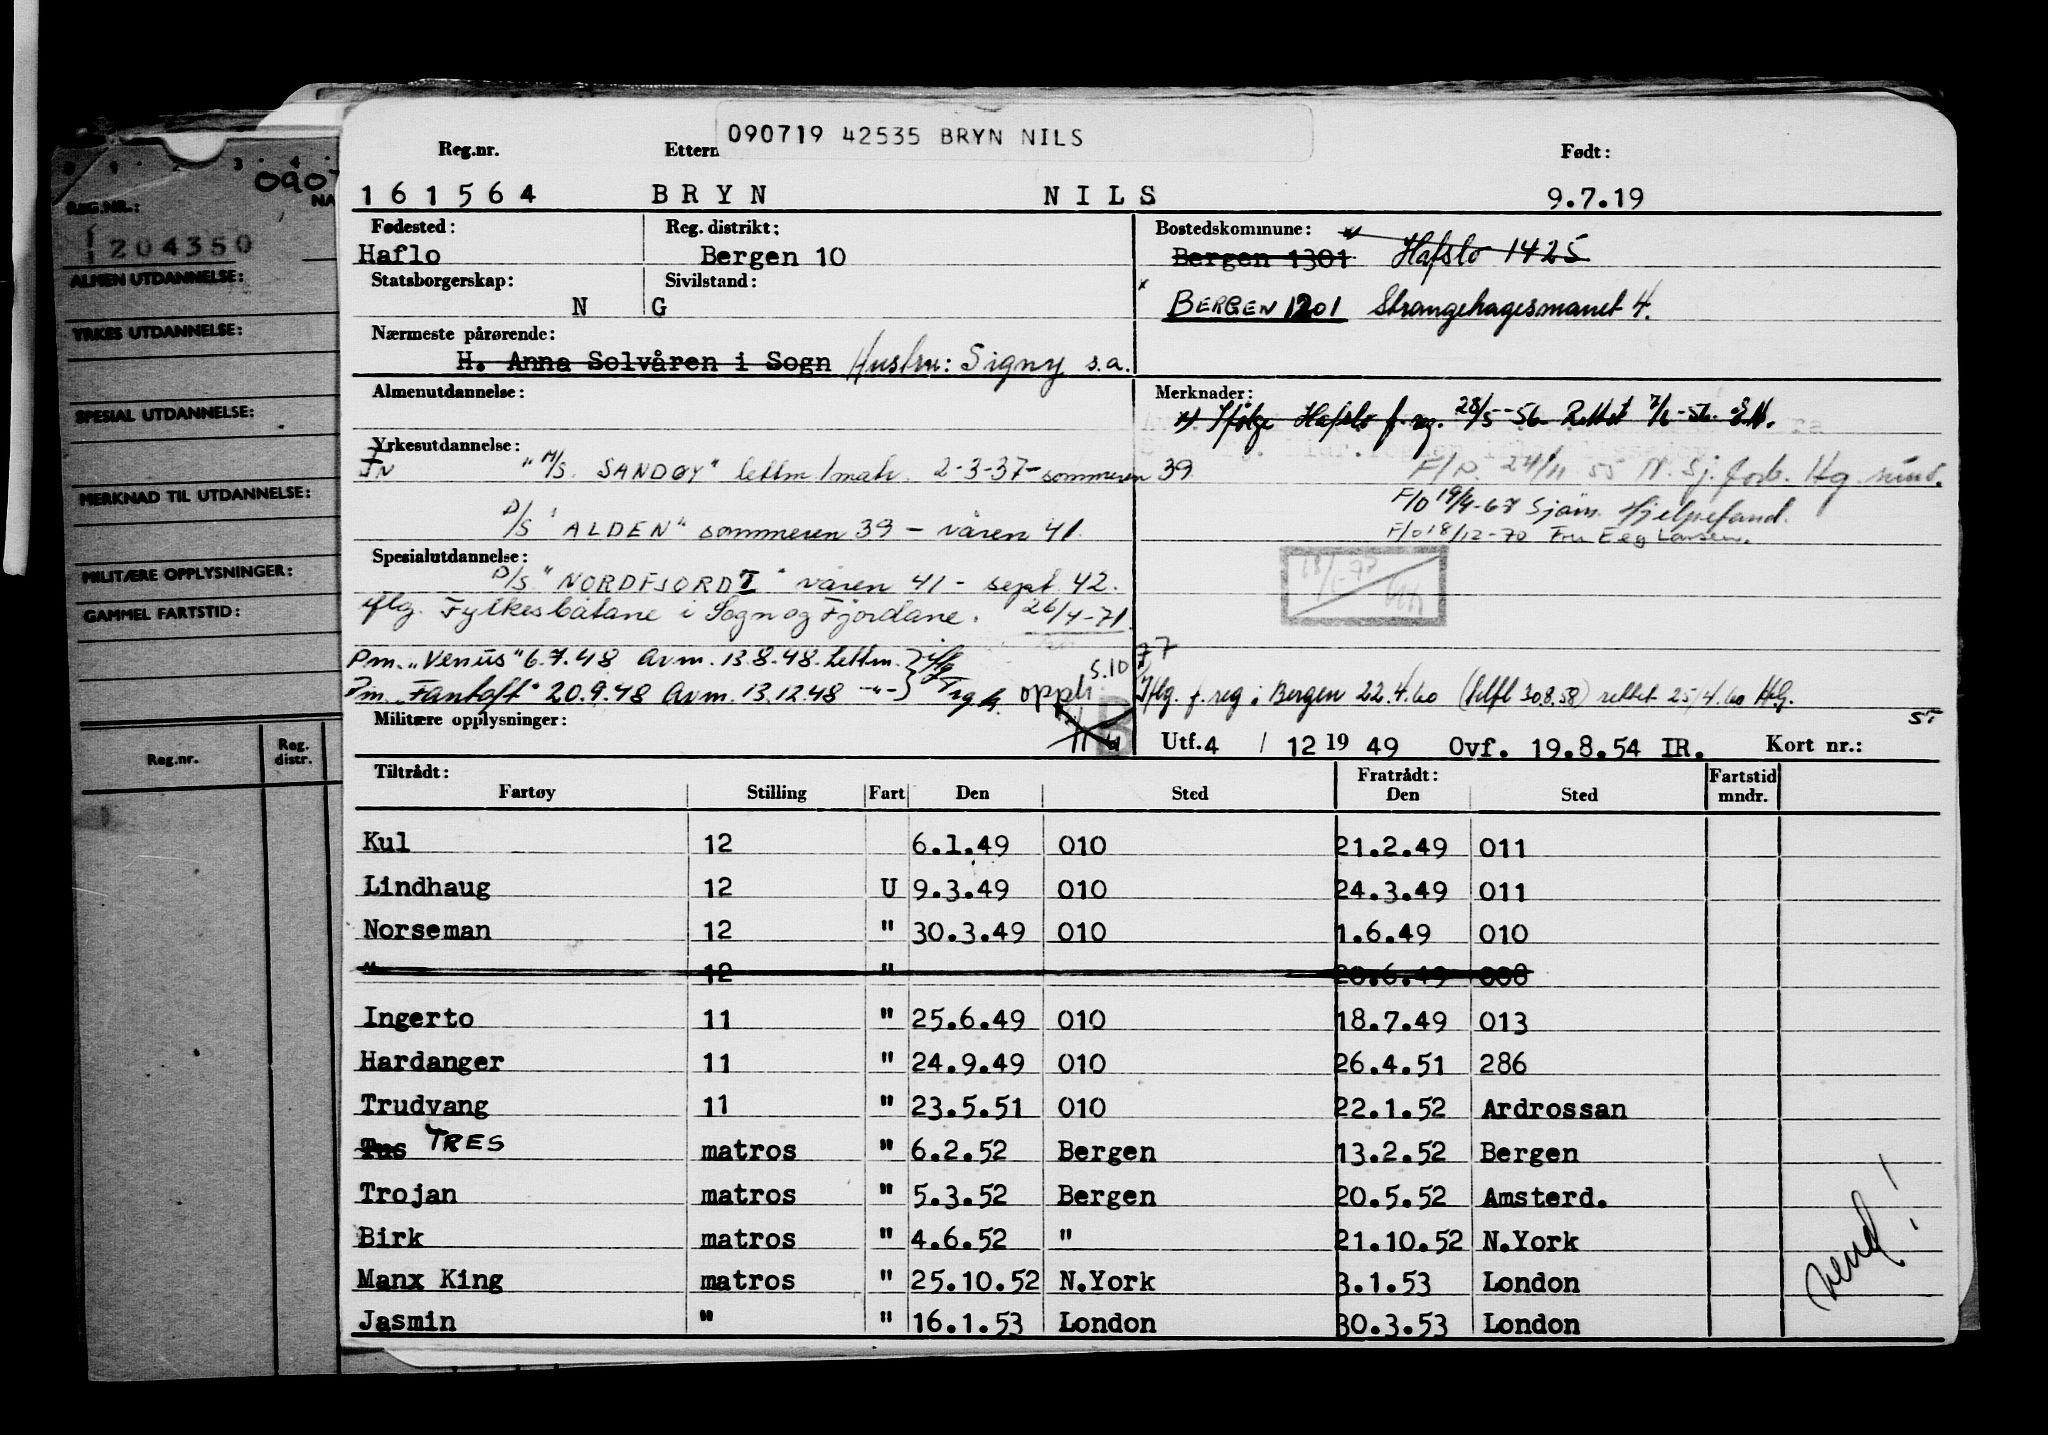 090719 42535 BRYN NILS
Reg.nr. Ettern Født:
161564 BRYN NILS 9.7.19
Fødested: Reg. distrikt: Bostedskommune:
Haflo Bergen 10 Bergen 1301 Hafslo 1425
Statsborgerskap: Sivilstand:
N G BERGEN 1201 Strangehagesmauet 4.
Nærmeste pårørende:
H. Anna Solvåren i Sogn Hustru: Signy s.a.
Almenutdannelse: Merknader:
x). Ifølge Hafslo f. reg. 28/5-56. Rettet 7/6-56.
Yrkesutdannelse:
"M/S. SANDØY" lettm/matr. 2-3-37-sommeren 39
F/O. 24/11 55 N. Sj. forb. Hg.sund.
F/O 19/4-67 Sjøm. Hjelpefond.
P/S "ALDEN" sommeren 39 - våren 41.
F/O 18/12-70 Fru Eeg Larsen.
Spesialutdannelse:
P/S. "NORDFJORD I" våren 41 - sept. 42.
iflg. Fylkesbåtane i Sogn og Fjordane. 26/4-71.
Pm. "Venus" 6.7.48 Avm. 13.8.48. Lettm. } iflg
Pm. "Fantoft" 20.9.48 Avm. 13.12.48 -"- } Trg.k. oppli S.10 77
Iflg. f. reg i Bergen 22.4.60 (tilfl 30.8.58) rettet 25/4.60 HG.
ST
Militære opplysninger:
Utf. 4 / 12 19 49 Ovf. 19.8.54 IR. Kort nr.:
Tiltrådt: Fratrådt: Fartstid
Fartøy Stilling Fart Den Sted Den Sted mndr.
Kul 12 6.1.49 010 21.2.49 011
Lindhaug 12 U 9.3.49 010 24.3.49 011
Norseman 12 " 30.3.49 010 1.6.49 010
" 12 " 20.6.49 008
Ingerto 11 " 25.6.49 010 18.7.49 013
Hardanger 11 " 24.9.49 010 26.4.51 286
Trudvang 11 " 23.5.51 010 22.1.52 Ardrossan
Tus TRES matros " 6.2.52 Bergen 13.2.52 Bergen
Trojan matros " 5.3.52 Bergen 20.5.52 Amsterd.
Birk matros " 4.6.52 " 21.10.52 N.York
Manx King matros " 25.10.52 N.York 3.1.53 London
Jasmin " " 16.1.53 London 30.3.53 London
vend!
0907
NA
REG.NR.:
204350
ALMEN UTDANNELSE:
YRKES UTDANNELSE:
SPESIAL UTDANNELSE:
MERKNAD TIL UTDANNELSE:
MILITÆRE OPPLYSNINGER:
GAMMEL FARTSTID:
Reg.nr. Reg. distr.